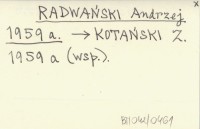 RADWAŃSKI Andrzej
1959 a. → KOTAŃSKI Z.
1959 a (wsp.).